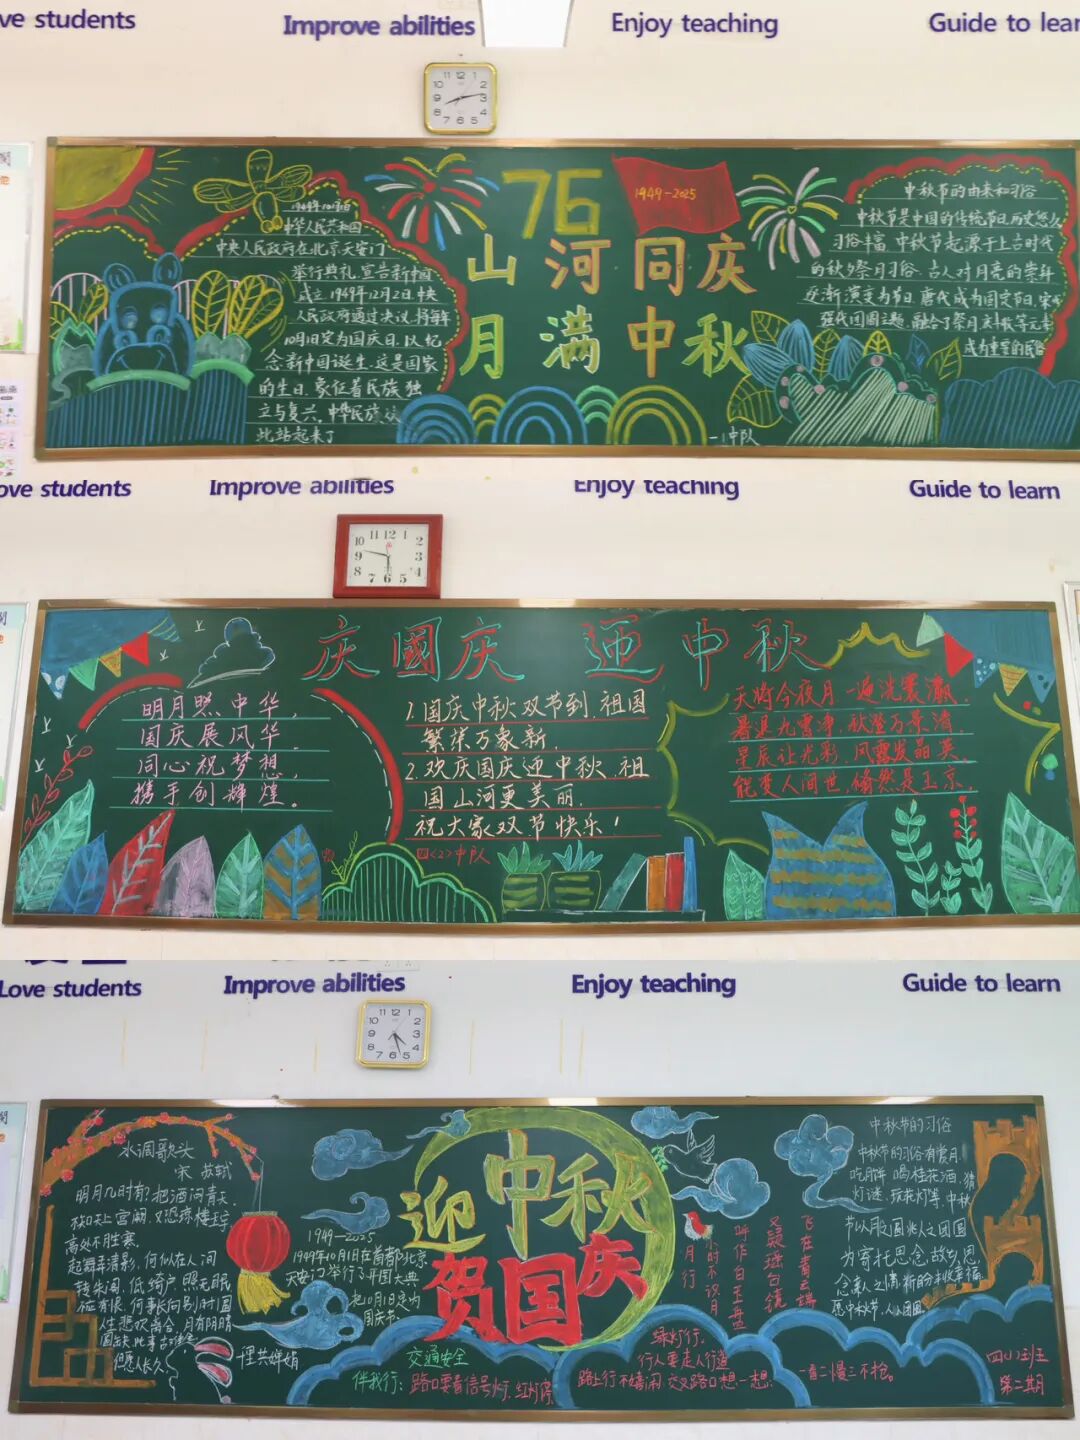 ve students Improve abilities Enjoy teaching Guide to lear
76
1949-2025
山河同庆
月满中秋
1949年10月1日
中华人民共和国
中央人民政府在北京天安门
举行典礼,宣告新中国
成立.1949年12月2日.中央
人民政府通过决议.将每年
10月1日定为国庆日.以纪
念新中国诞生.这是国家
的生日.象征着民族独
立与复兴,中华民族从
此站起来了
中秋节的由来和习俗
中秋节是中国的传统节日.历史悠久
习俗丰富.中秋节起源于上古时代
的秋夕祭月习俗.古人对月亮的崇拜
逐渐演变为节日.唐代成为固定节日.宋代
强化团圆主题.融合了祭月庆丰收等元素
成为重要的民俗
ove students Improve abilities Enjoy teaching Guide to learn
庆國庆 迎中秋
明月照中华,
国庆展风华,
同心祝梦想,
携手创辉煌。
1.国庆中秋双节到,祖国
繁荣万象新.
2.欢庆国庆迎中秋,祖
国山河更美丽.
祝大家双节快乐!
四<2>中队
天将今夜月,一遍洗寰瀛,
暑退九霄净,秋澄万景清,
星辰让光彩,风露发晶英,
能变人间世,翛然是玉京,
Love students Improve abilities Enjoy teaching Guide to learn
迎中秋
贺国庆
水调歌头
宋 苏轼
明月几时有?把酒问青天
高处不胜寒.
起舞弄清影,何似在人间
转朱阁,低绮户,照无眠
不应有恨,何事长向别时圆
人生悲欢离合,月有阴晴
圆缺,此事古难全
但愿人长久,
千里共婵娟
1949—2025
1949年10月1日在首都北京
天安门举行了开国大典
把10月1日定为
国庆节.
古朗月行
小时不识月
呼作白玉盘
又疑瑶台镜
飞在青云端
中秋节的习俗
中秋节的习俗有赏月
吃月饼 喝桂花酒,猜
灯谜.
节以月之圆兆人之团圆
为寄托思念故乡,思
念亲人之情,祈盼丰收幸福
交通安全
伴我行:路口要看信号灯,红灯停
绿灯行.
行人要走人行道
路上行不嬉闹,交叉路口想一想.
一看二慢三不抢。
四(1)班
第二期